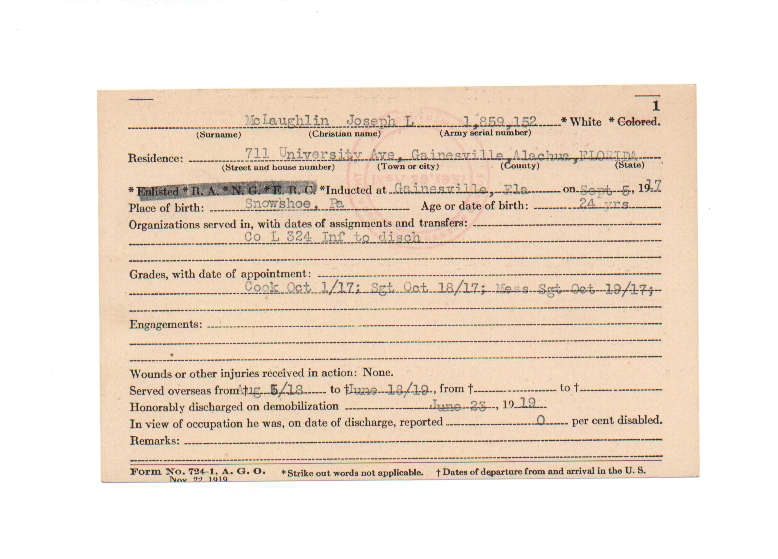 1
McLaughlin Joseph L 1,859,152 * White * Colored.
(Surname) (Christian name) (Army serial number)
Residence: 711 University Ave, Gainesville, Alachua, FLORIDA
(Street and house number) (Town or city) (County) (State)
* Enlisted * R. A. * N. G. * E. R. C. *Inducted at Gainesville, Fla on Sept 5, 1917
Place of birth: Snowshoe, Pa Age or date of birth: 24 yrs
Organizations served in, with dates of assignments and transfers:
Co L 324 Inf to disch
Grades, with date of appointment:
Cook Oct 1/17; Sgt Oct 18/17; Mess Sgt Oct 19/17;
Engagements:
Wounds or other injuries received in action: None.
Served overseas from † Aug 5/18 to † June 18/19, from † to †
Honorably discharged on demobilization June 23, 1919
In view of occupation he was, on date of discharge, reported 0 per cent disabled.
Remarks:
Form No. 724-1, A. G. O. *Strike out words not applicable. † Dates of departure from and arrival in the U. S.
Nov. 22, 1919